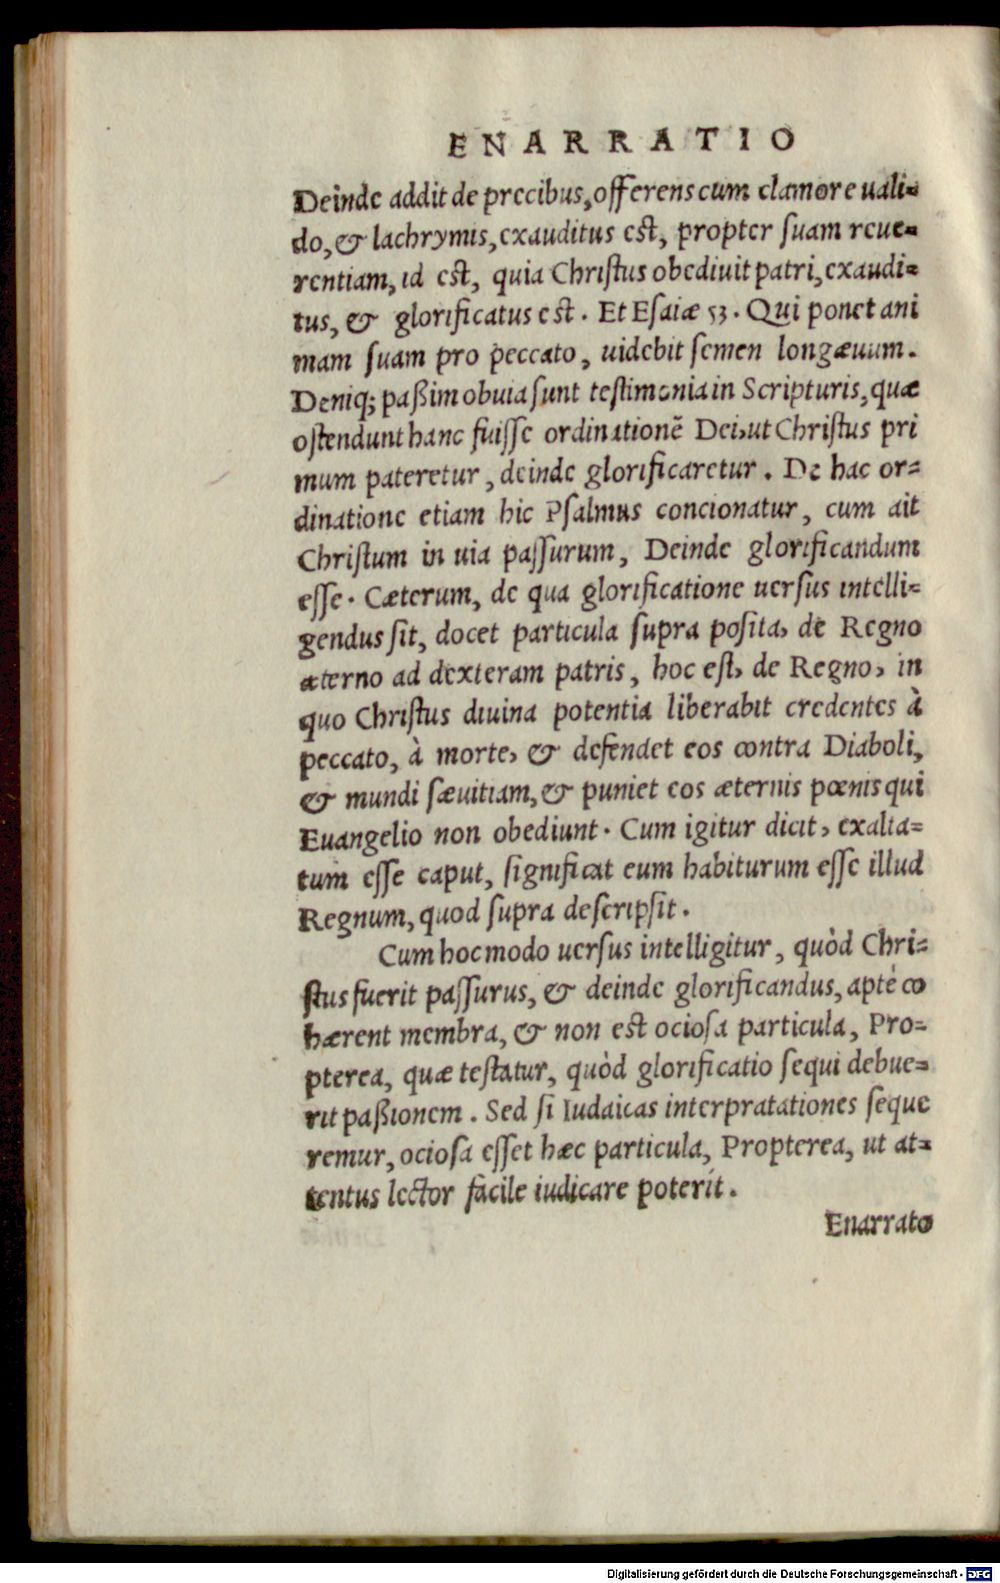 ENARRATIO
Deinde addit de precibus, offerens cum clamore uali-
do, & lachrymis, exauditus est, propter suam reue-
rentiam, id est, quia Christus obediuit patri, exaudi-
tus, & glorificatus est. Et Esaiæ 53. Qui ponet ani
mam suam pro peccato, uidebit semen longæuum.
Deniq; paßim obuia sunt testimonia in Scripturis, quæ
ostendunt hanc fuisse ordinationē Dei, ut Christus pri
mum pateretur, deinde glorificaretur. De hac or-
dinatione etiam hic Psalmus concionatur, cum ait
Christum in uia passurum, Deinde glorificandum
esse. Cæterum, de qua glorificatione uersus intelli-
gendus sit, docet particula supra posita, de Regno
æterno ad dexteram patris, hoc est, de Regno, in
quo Christus diuina potentia liberabit credentes à
peccato, à morte, & defendet eos contra Diaboli,
& mundi sæuitiam, & puniet eos æternis pœnis qui
Euangelio non obediunt. Cum igitur dicit, exalta-
tum esse caput, significat eum habiturum esse illud
Regnum, quod supra descripsit.
Cum hoc modo uersus intelligitur, quòd Chri-
stus fuerit passurus, & deinde glorificandus, aptè co
hærent membra, & non est ociosa particula, Pro-
pterea, quæ testatur, quòd glorificatio sequi debue-
rit paßionem. Sed si Iudaicas interpratationes seque
remur, ociosa esset hæc particula, Propterea, ut at-
tentus lector facile iudicare poterit.
Enarrato
Digitalisierung gefördert durch die Deutsche Forschungsgemeinschaft - DFG